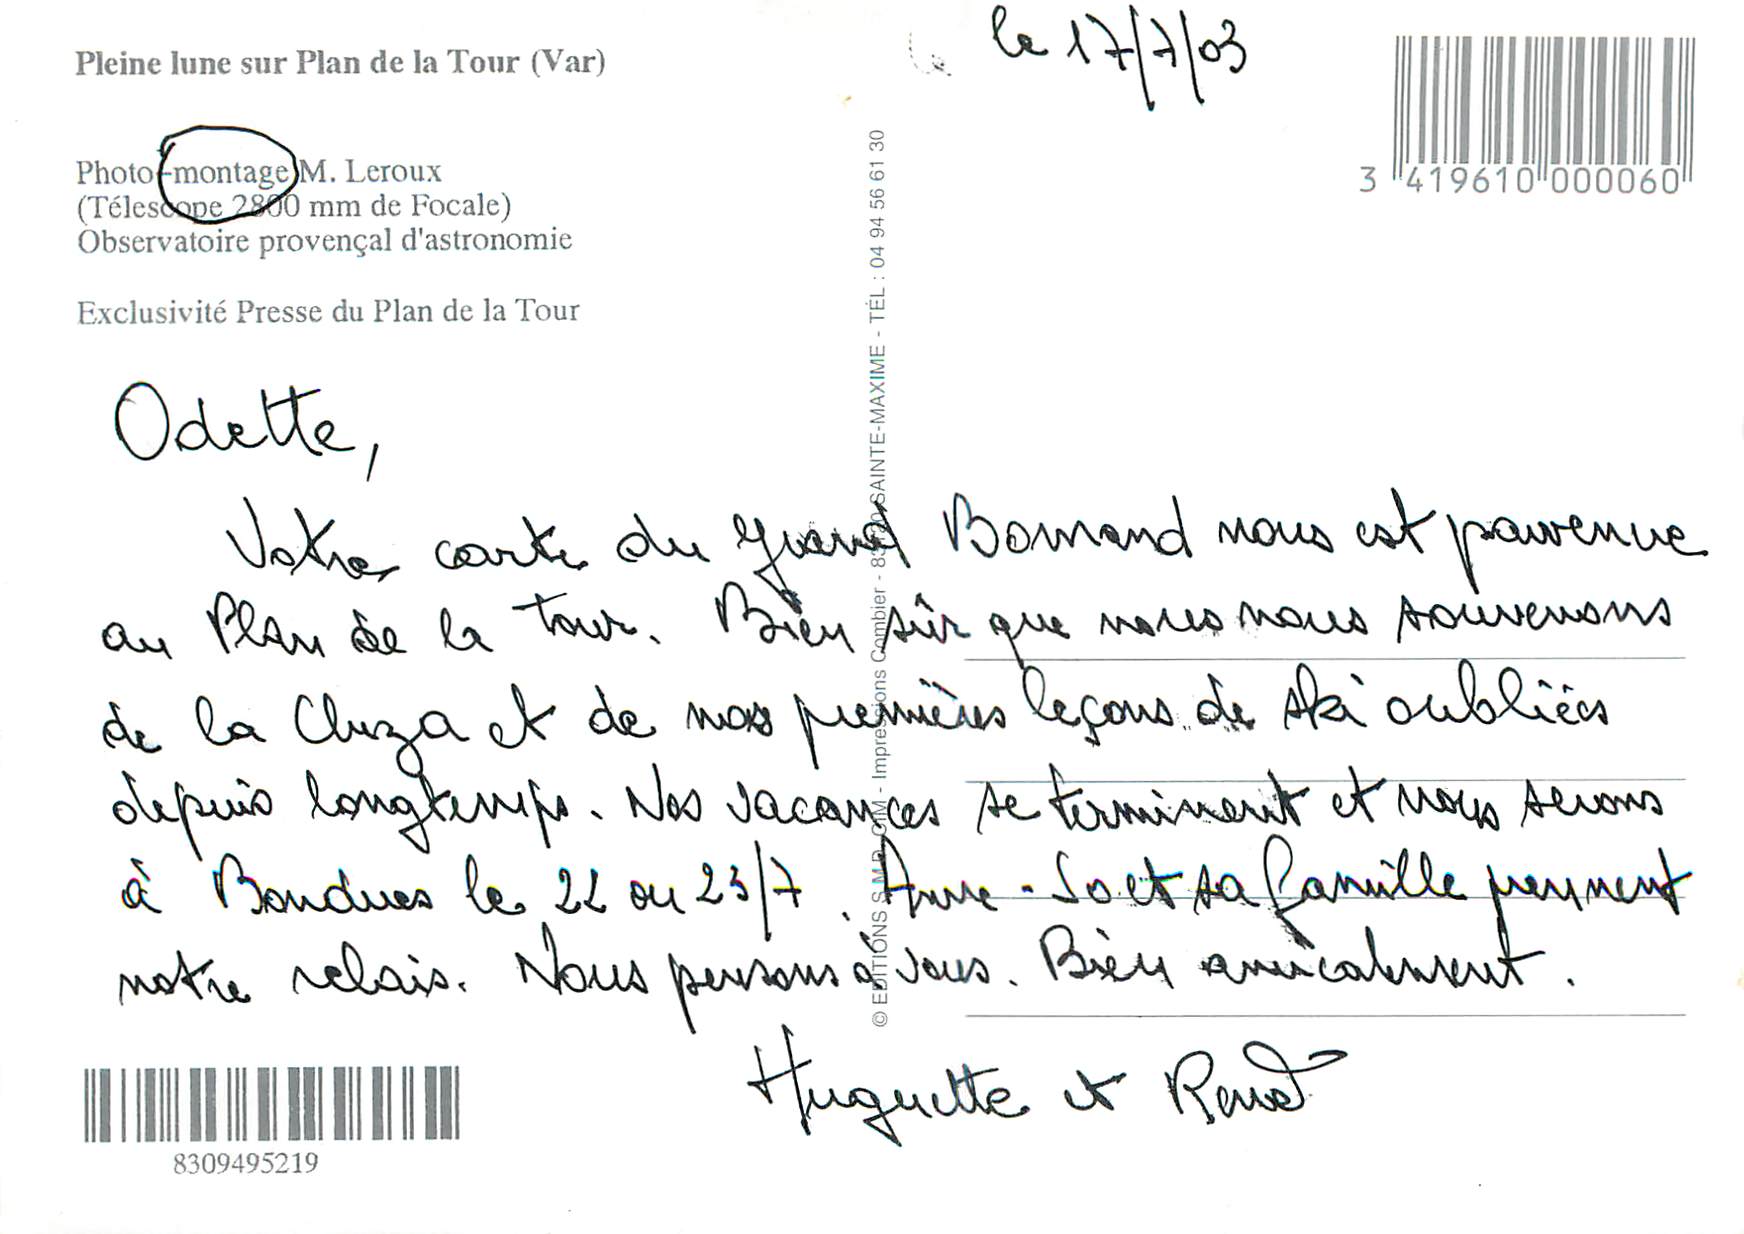 Pleine lune sur Plan de la Tour (Var)
Photo-montage M. Leroux
(Télescope 2800 mm de Focale)
Observatoire provençal d'astronomie
Exclusivité Presse du Plan de la Tour
le 17/7/03
3 419610 000060
Odette,
Votre carte du grand Bornand nous est parvenue
au Plan de la Tour. Bien sûr que nous nous souvenons
de la Cluza et de nos premières leçons de ski oubliées
depuis longtemps. Nos vacances se terminent et nous serons
à Bondues le 22 ou 23/7. Anne-So et sa famille prennent
notre relais. Nous pensons à vous. Bien amicalement.
Huguette et René
© EDITIONS S.M.D. GIM - Impressions Combier - 83120 SAINTE-MAXIME - TÉL : 04 94 56 61 30
8309495219